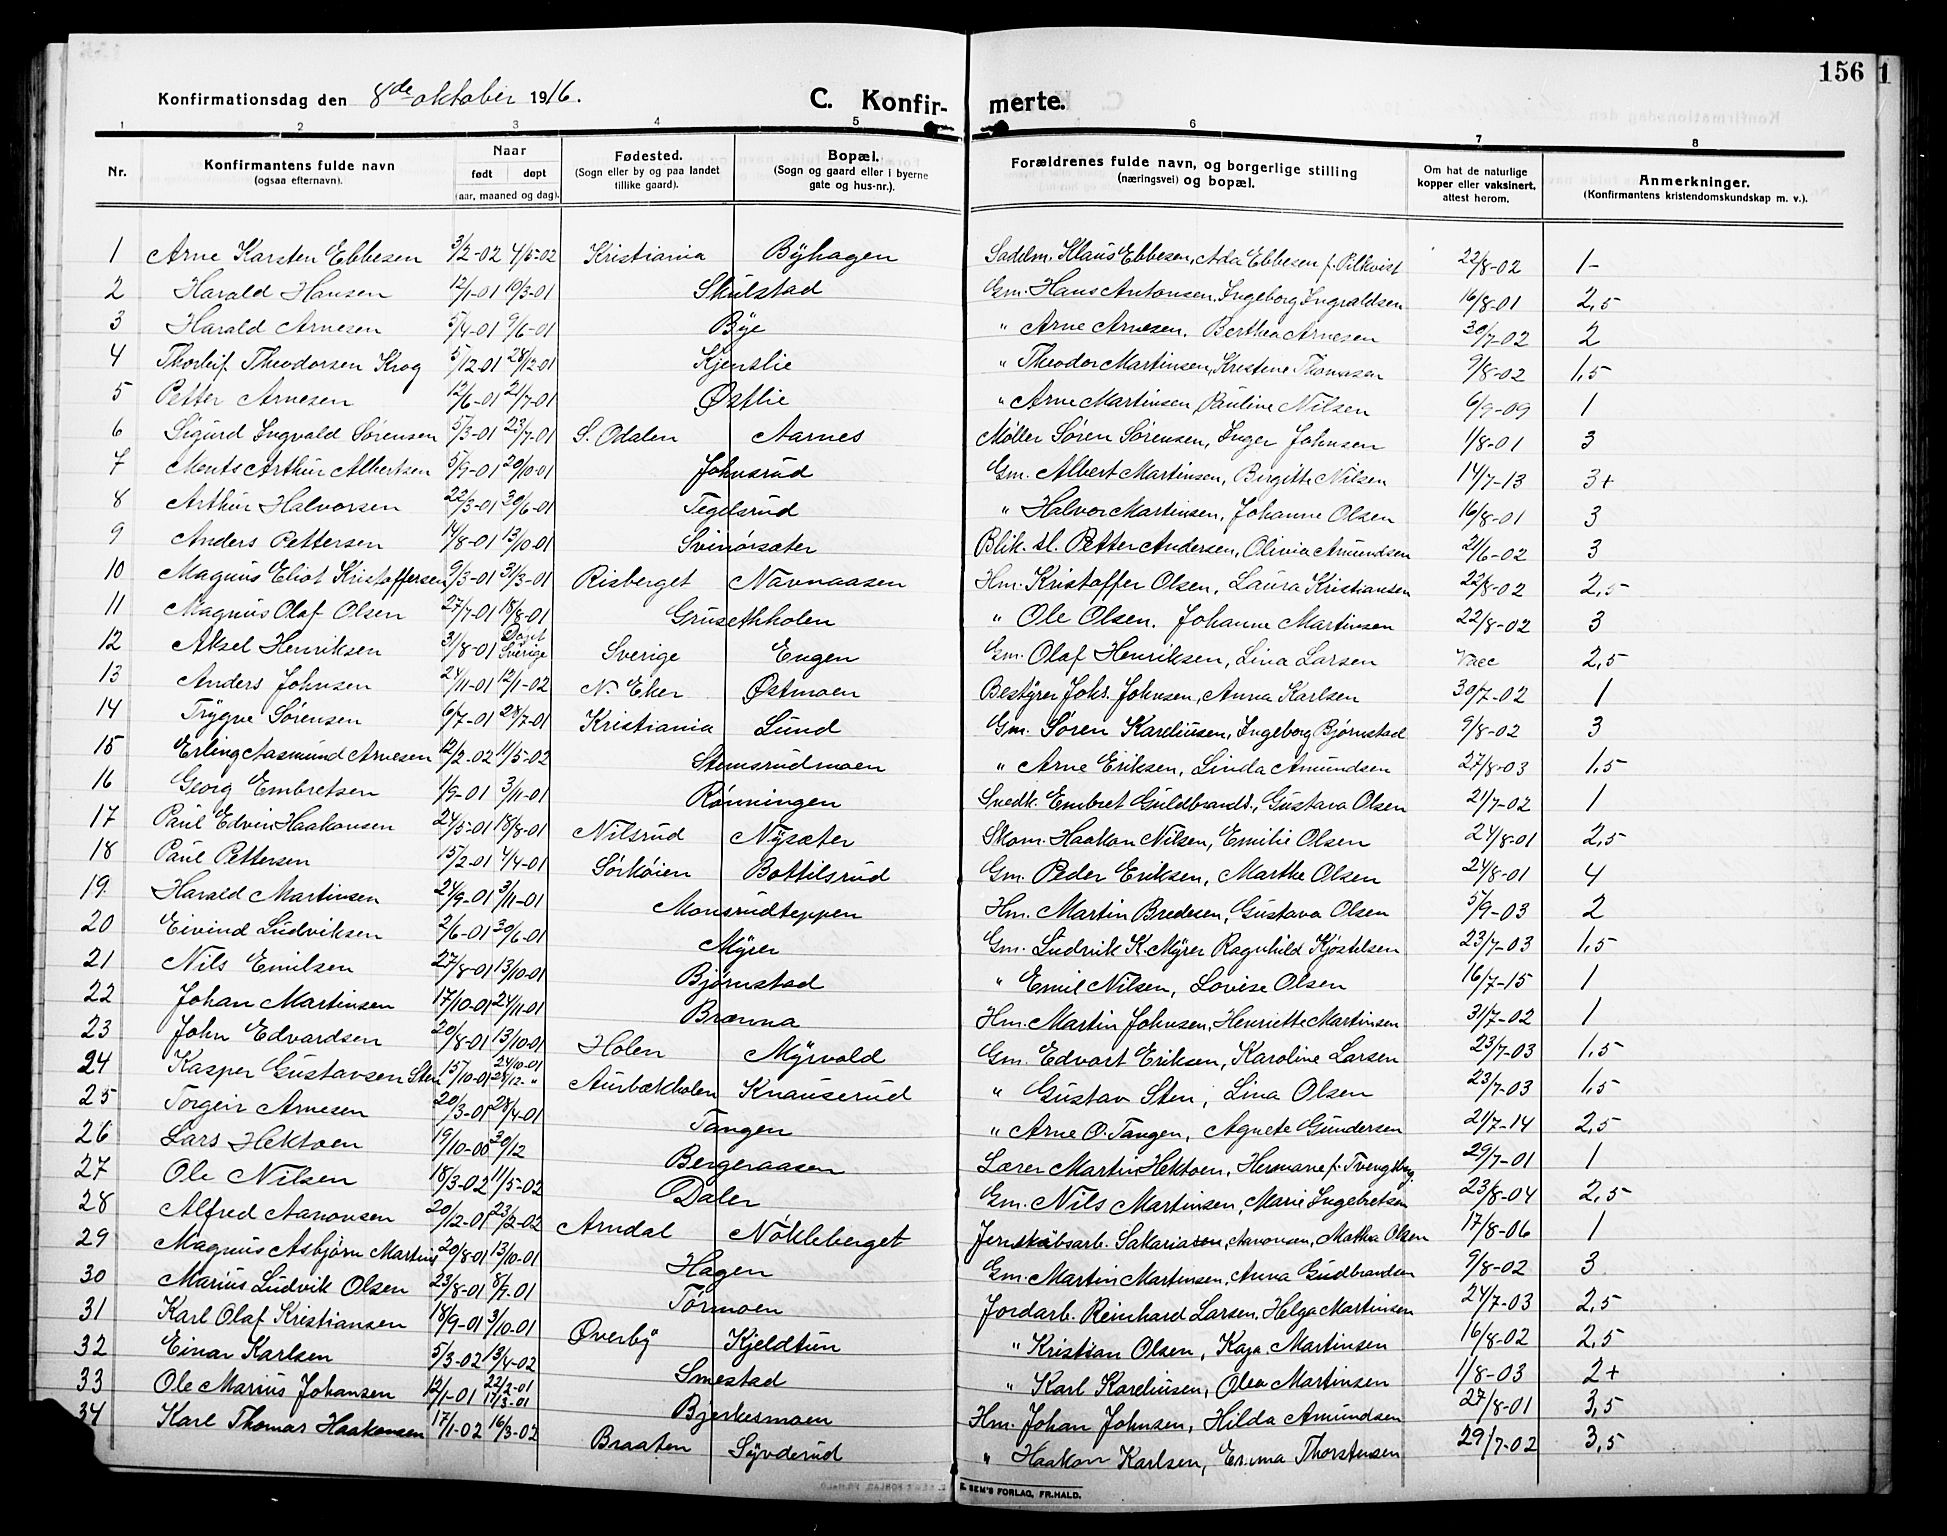 156 1
Konfirmationsdag den 8de oktober 1916.
C. Konfir- merte.
1 2 3 4 5 6 7 8
Nr. Konfirmantens fulde navn (ogsaa efternavn). Naar født døpt (aar, maaned og dag). Fødested. (Sogn eller by og paa landet tillike gaard). Bopæl. (Sogn og gaard eller i byerne gate og hus-nr.). Forældrenes fulde navn, og borgerlige stilling (næringsvei) og bopæl. Om hat de naturlige kopper eller vaksinert, attest herom. Anmerkninger. (Konfirmantens kristendomskundskap m. v.).
1 Arne Karsten Ebbesen 3/2-02 4/5-02 Kristiania Byhagen Sadelm. Klaus Ebbesen, Ada Ebbesen f. Pilkvist 22/8-02 1-
2 Harald Hansen 12/1-01 10/3-01 Skulstad Gm. Hans Antonsen, Ingeborg Ingvaldsen 16/8-01 2,5
3 Harald Arnesen 5/4-01 9/6-01 Bye " Arne Arnesen. Berthea Arnesen 30/7-02 2
4 Thorleif Theodorsen Krog 5/12-01 28/12-01 Kjenslie " Theodor Martinsen, Kristine Thomasen 9/8-02 1,5
5 Petter Arnesen 12/6-01 21/7-01 Østlie " Arne Martinsen, Pauline Nilsen 6/9-09 1
6 Sigurd Ingvald Sørensen 5/3-01 23/7-01 S. Odalen Aarnes Møller Søren Sørensen, Inger Johnsen 1/8-01 3
7 Mentz Arthur Albertsen 5/9-01 20/10-01 Johnsrud Gm. Albert Martinsen, Birgitte Nilsen 14/7-13 3+
8 Arthur Halvorsen 22/3-01 30/6-01 Tegelsrud " Halvor Martinsen, Johanne Olsen 16/8-01 3
9 Anders Pettersen 14/8-01 13/10-01 Svinørsæter Blik. sl. Petter Andersen, Olivia Amundsen 21/6-02 3
10 Magnus Eliot Kristoffersen 9/3-01 31/3-01 Risberget Navnaasen Hm. Kristoffer Olsen, Laura Kristiansen 22/8-02 2,5
11 Magnus Olaf Olsen 27/7-01 18/8-01 Grusethholen " Ole Olsen. Johanne Martinsen 22/8-02 3
12 Aksel Henriksen 31/8-01 Døpt Sverige Sverige Engen Gm. Olaf Henriksen, Lina Larsen Vacc 2,5
13 Anders Johnsen 24/11-01 12/1-02 N. Eker Østmoen Bestyrer Johs. Johnsen, Anna Karlsen 30/7-02 1
14 Trygve Sørensen 6/7-01 28/7-01 Kristiania Lund Gm. Søren Kareliusen, Ingeborg Bjørnstad 9/8-02 3
15 Erling Aasmund Arnesen 12/2-02 11/5-02 Stemsrudmoen " Arne Eriksen, Linda Amundsen 27/8-03 1,5
16 Georg Embretsen 1/9-01 3/11-01 Rønningen Snedk. Embret Guldbrands., Gustava Olsen 21/7-02 1
17 Paul Edvin Haakonsen 24/5-01 18/8-01 Nilsrud Nysæter Skom. Haakon Nilsen, Emilie Olsen 24/8-01 2,5
18 Paul Pettersen 15/2-01 4/4-01 Sørkøien Bottilsrud Gm. Peder Eriksen, Marthe Olsen 24/8-01 4
19 Harald Martinsen 24/9-01 3/11-01 Monsrudteppen Hm. Martin Bredesen, Gustava Olsen 5/9-03 2
20 Eivind Ludviksen 2/6-01 30/6-01 Myrer Gm. Ludvik K. Myrer Ragnhild Kjøstilsen 23/7-03 1,5
21 Nils Emilsen 27/8-01 13/10-01 Bjørnstad " Emil Nilsen, Lovise Olsen 16/7-15 1
22 Johan Martinsen 17/10-01 24/11-01 Brævna Hm. Martin Johnsen, Henriette Martinsen 31/7-02 1
23 John Edvardsen 20/8-01 13/10-01 Holen Myrvold Gm. Edvart Eriksen, Karoline Larsen 23/7-03 1,5
24 Kasper Gustavsen Sten 15/10-01 24/10-01 28/12-" Aurbækholen Knauserud " Gustav Sten, Lina Olsen 23/7-03 1,5
25 Torgeir Arnesen 20/3-01 28/4-01 Tangen " Arne O. Tangen, Agnete Gundersen 21/7-14 2,5
26 Lars Hektoen 19/10-00 30/12 Bergeraasen Lærer Martin Hektoen, Hermane f. Tvengsberg 29/7-01 1
27 Ole Nilsen 18/3-02 11/5-02 Daler Gm. Nils Martinsen, Marie Ingebretsen 23/8-04 2,5
28 Alfred Aanonsen 20/12-01 23/2-02 Arndal Nøkleberget Jernskibsarb. Sakariasen, Aanonsen, Mathea Olsen 17/8-06 1
29 Magnus Asbjørn Martins 20/8-01 13/10-01 Hagen Gm. Martin Martinsen, Anna Gudbrandsen 9/8-02 3
30 Marius Ludvik Olsen 23/8-01 8/9-01 Tormoen Jordarb. Reinhard Larsen, Helga Martinsen 24/7-03 2,5
31 Karl Olaf Kristiansen 18/9-01 3/10-01 Øverby Kjeldtun " Kristian Olsen, Kaja Martinsen 16/8-02 2,5
32 Einar Karlsen 5/3-02 13/4-02 Smestad " Karl Kareliusen, Olea Martinsen 1/8-03 2+
33 Ole Marius Johansen 12/1-01 22/2-01 17/3-01 Bjerkesmoen Hm. Johan Johnsen, Hilda Amundsen 27/8-01 3,5
34 Karl Thomas Haakonsen 17/1-02 16/3-02 Braaten Syvderud " Haakon Karlsen, Emma Thorstensen 29/7-02 3,5
E. SEM'S FORLAG, FR.HALD.